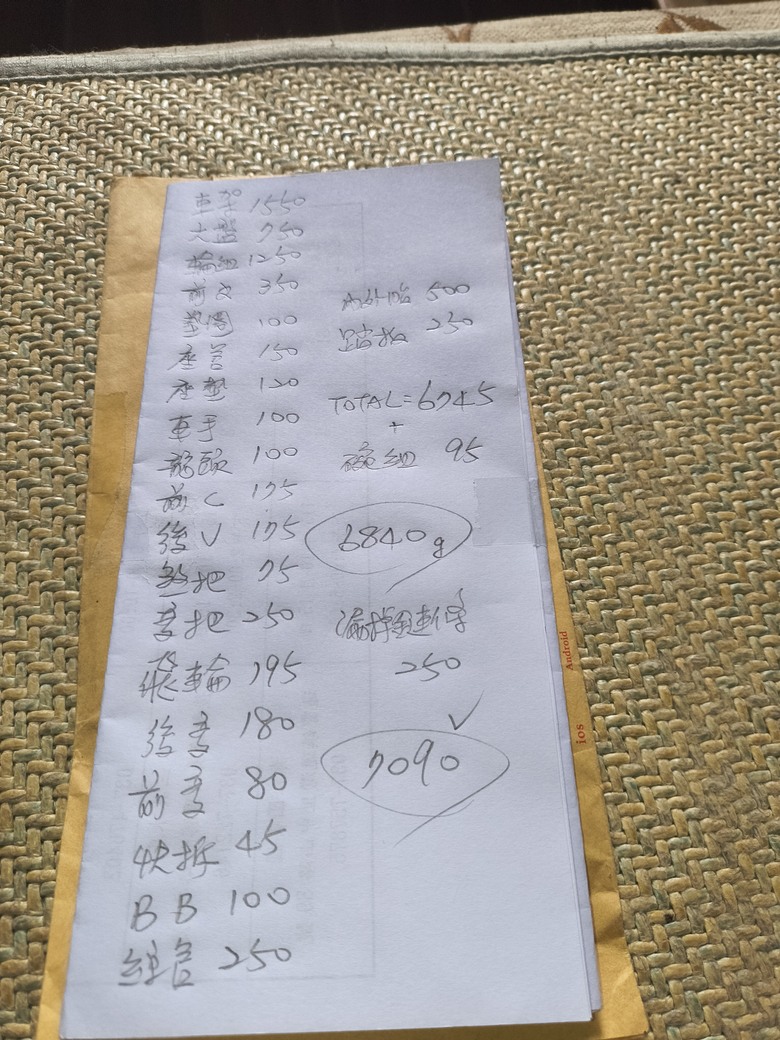 車架 1550
大盤 750
輪組 1250
前叉 350
墊圈 100
座管 150
座墊 120
車手 100
龍頭 100
前C 175
後V 175
煞把 75
變把 250
飛輪 195
後變 180
前變 80
快拆 45
BB 100
線管 250
內外胎 500
踏板 250
TOTAL=6745
+
碗組 95
6840g
漏掉鏈條
250
7090
Android
ios